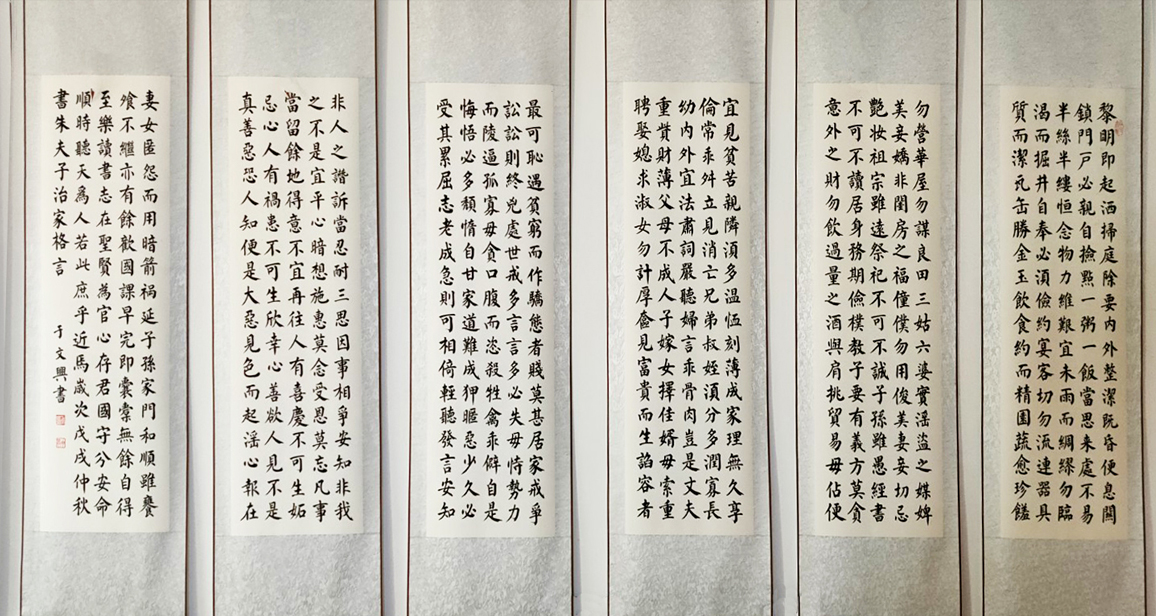 黎明即起洒掃庭除要内外整潔既昏便息關
鎖門戶必親自撿點一粥一飯當思来處不易
半絲半縷恒念物力維艱宜未雨而綢繆勿臨
渴而掘井自奉必湏儉約宴客切勿流連器具
質而潔瓦缶勝金玉飲食約而精園蔬愈珍饈
勿營華屋勿謀良田三姑六婆實滛盗之媒婢
美妾嬌非閨房之福僮僕勿用俊美妻妾切忌
艷妝祖宗雖遠祭祀不可不誠子孫雖愚經書
不可不讀居身務期儉樸教子要有義方莫貪
意外之財勿飲過量之酒與肩挑貿易毋佔便
宜見貧苦親隣湏多温恤刻薄成家理無久享
倫常乖舛立見消亡兄弟叔姪湏分多潤寡長
幼内外宜法肅詞嚴聽婦言乖骨肉豈是丈夫
重貲財薄父母不成人子嫁女擇佳婿毋索重
聘娶媳求淑女勿計厚奩見富貴而生諂容者
最可恥遇貧窮而作驕態者賤莫甚居家戒爭
訟訟則終兇處世戒多言言多必失毋恃勢力
而陵逼孤寡毋貪口腹而恣殺牲禽乖僻自是
悔悟必多頹惰自甘家道難成狎暱惡少久必
受其累屈志老成急則可相倚輕聽發言安知
非人之譖訴當忍耐三思因事相爭安知非我
之不是宜平心暗想施惠莫念受恩莫忘凡事
當留餘地得意不宜再往人有喜慶不可生妬
忌心人有禍患不可生欣幸心善欲人見不是
真善惡恐人知便是大惡見色而起滛心報在
妻女匿怨而用暗箭禍延子孫家門和順雖饔
飧不繼亦有餘歡國課早完即囊橐無餘自得
至樂讀書志在聖賢為官心存君國守分安命
順時聽天為人若此庶乎近焉歲次戊戌仲秋
書朱夫子治家格言 于文興書